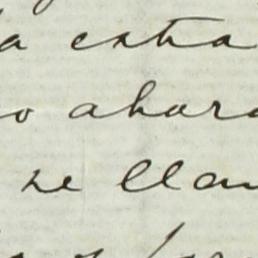 a extra
o ahora
se llam